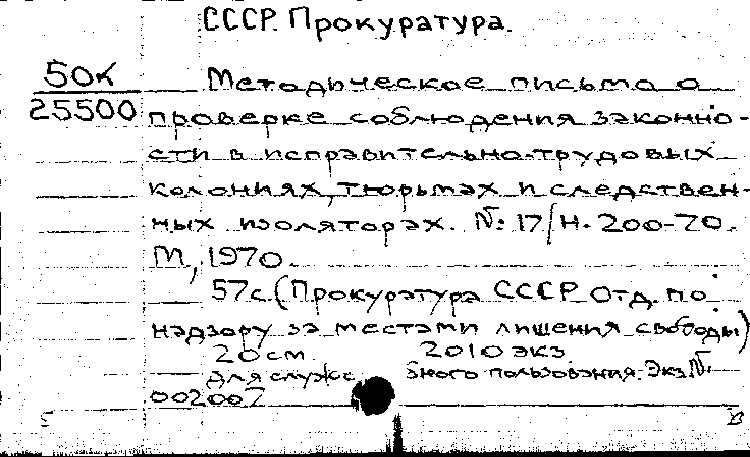 СССР. Прокуратура.
50к
25500
Методическое письмо о
проверке соблюдения законно-
сти в исправительно-трудовых
колониях, тюрьмах и следствен-
ных изоляторах. №: 17/н-200-70.
М, 1970.
57с. (Прокуратура СССР. Отд. по
надзору за местами лишения свободы)
20см. 2010 экз.
для служебного пользования. Экз №:
002007